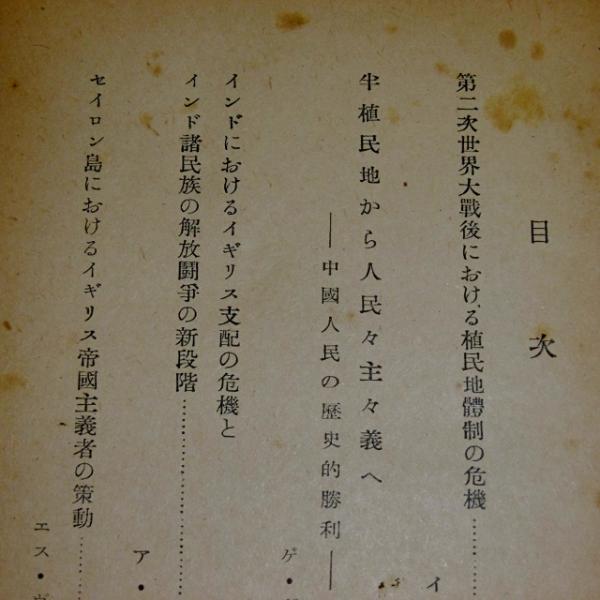 目次
第二次世界大戰後における植民地體制の危機……
イ
半植民地から人民々主々義へ
——中國人民の歷史的勝利——
ゲ・
インドにおけるイギリス支配の危機と
インド諸民族の解放鬪爭の新段階……
ア・
セイロン島におけるイギリス帝國主義者の策動……
エス・